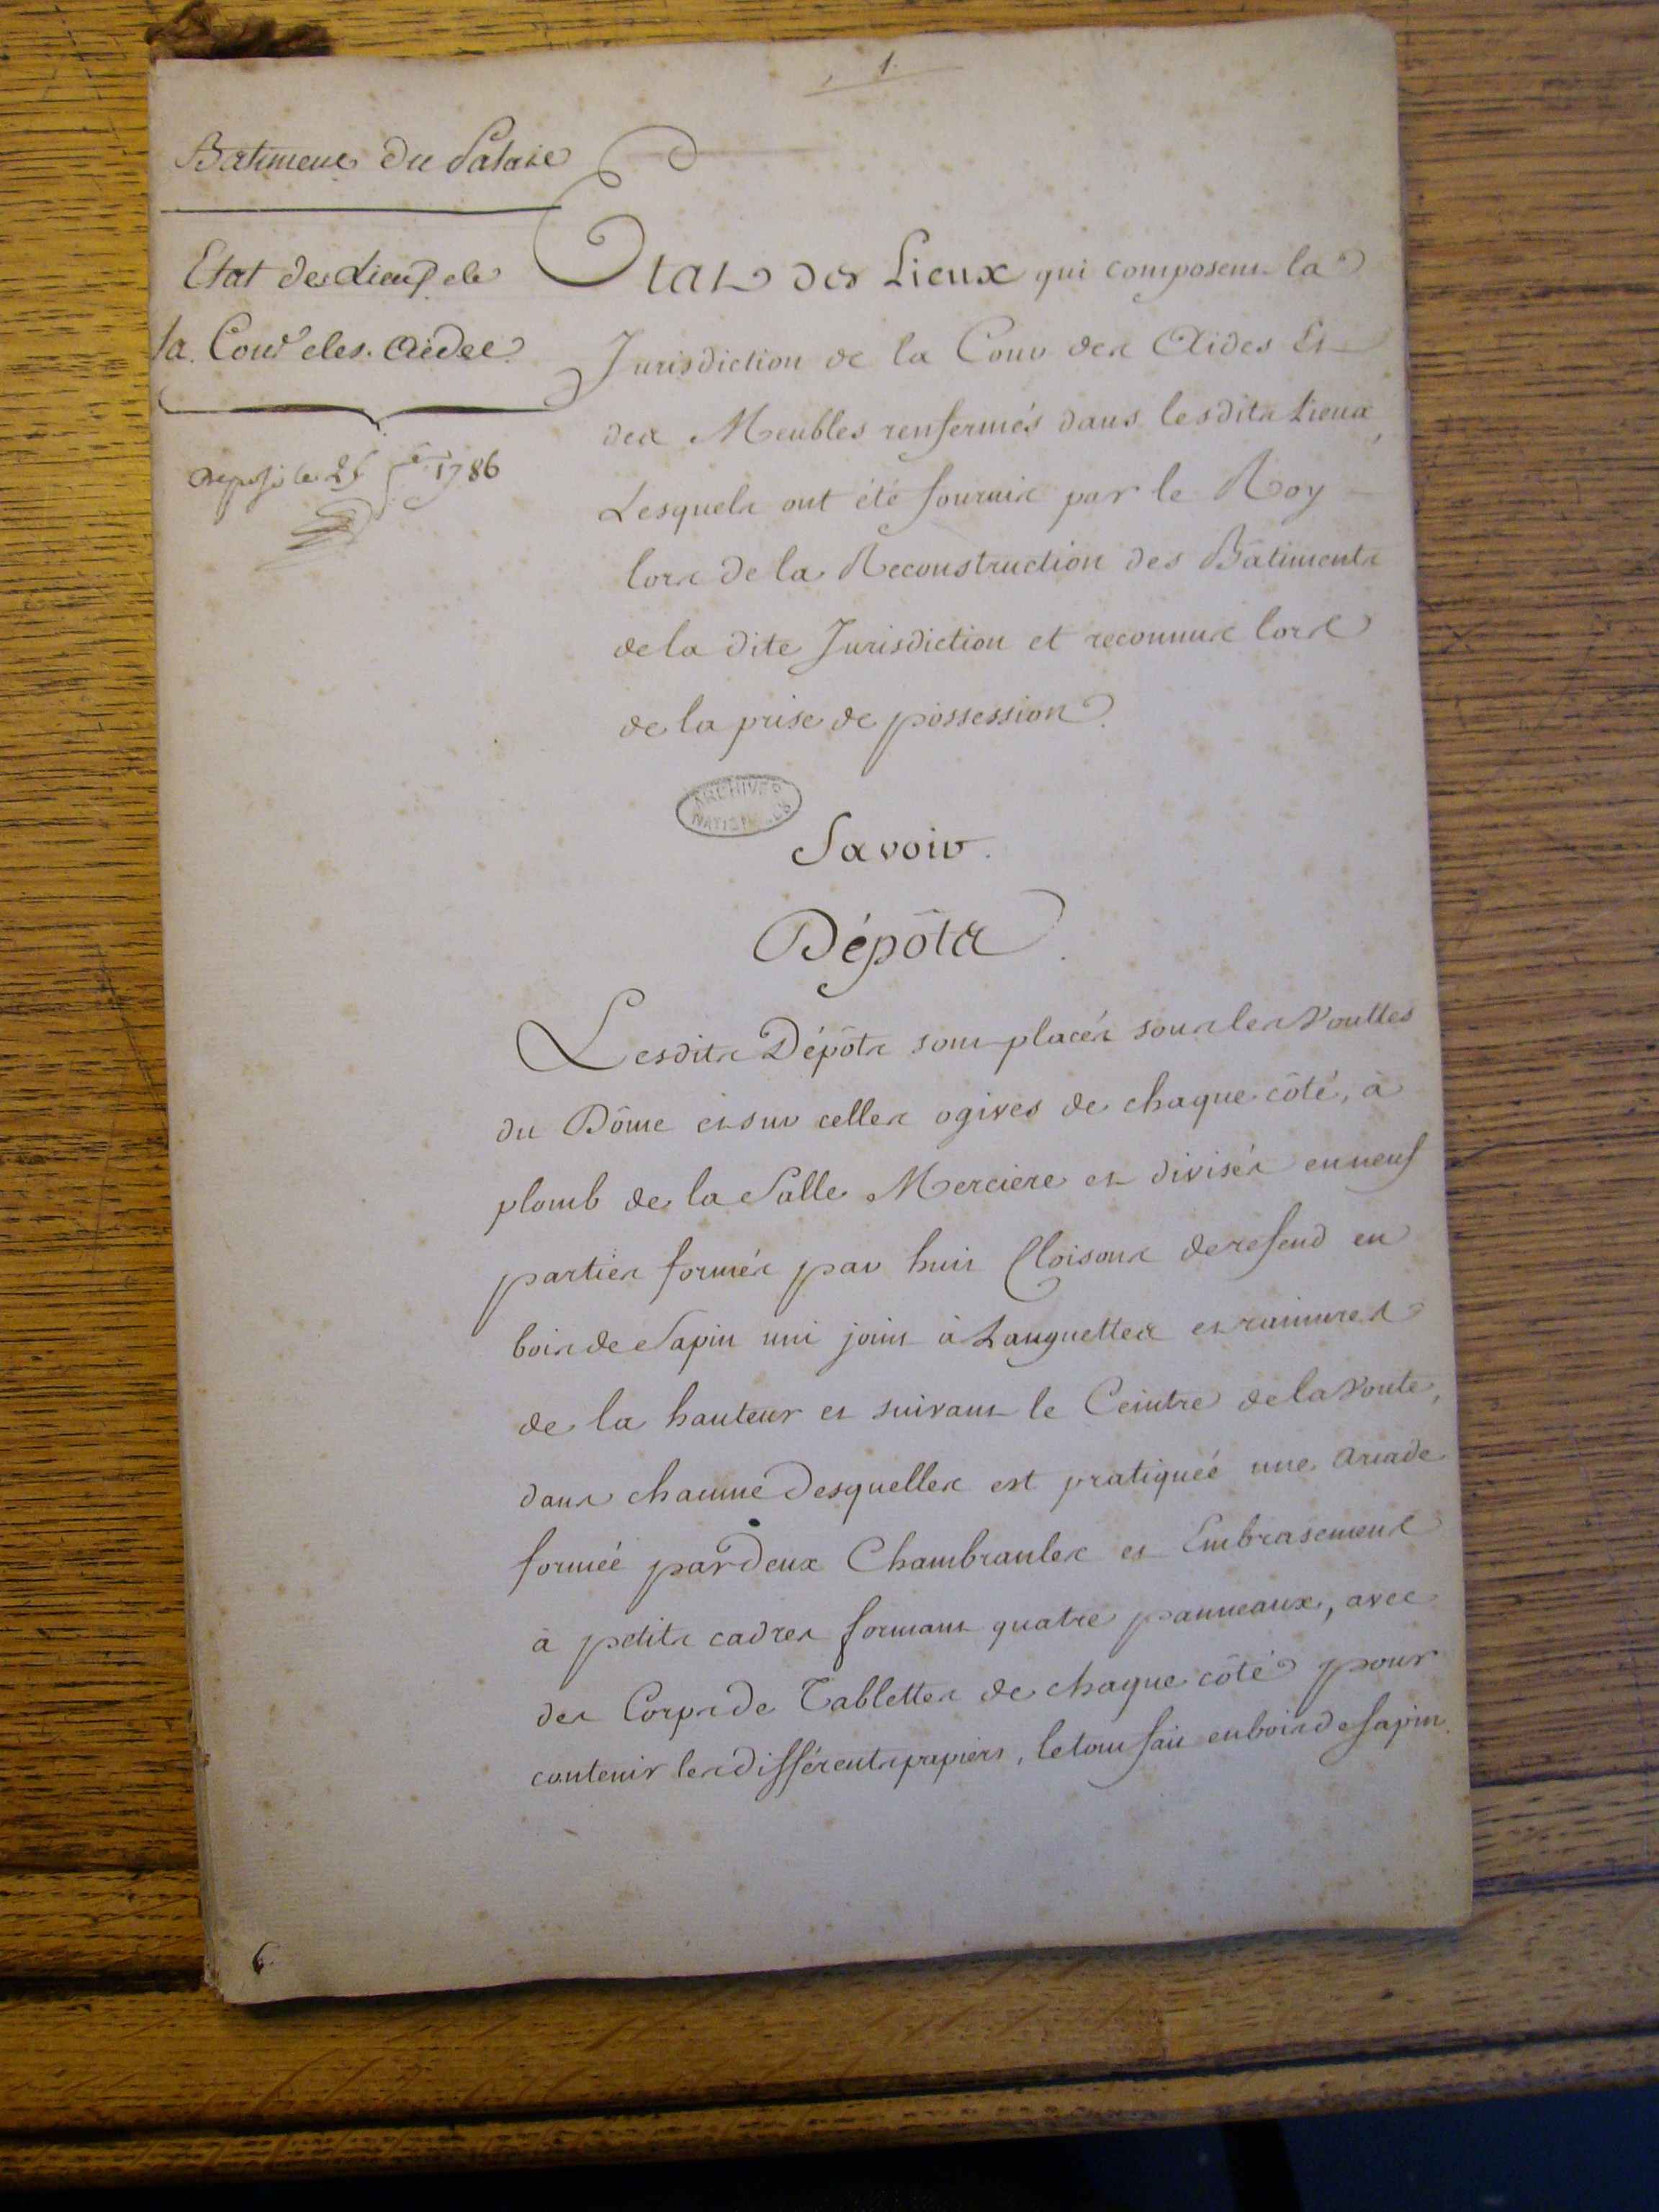 1.
Batimens du Palais
Etat des Lieux de
la Cour des Aides
Deposé le 1786
Etat des Lieux qui composent la
Jurisdiction de la Cour des Aides Et
des Meubles renfermés dans lesdits Lieux,
Lesquels ont été fournis par le Roy
lors de la Reconstruction des Bâtiments
de la dite Jurisdiction et reconnus lors
de la prise de possession.
ARCHIVES
NATIONALES
Savoir.
Dépôts.
Lesdits Dépôts sont placés sous les Voultes
du Dôme et sur celles ogives de chaque côté, à
plomb de la Salle Merciere et divisés en neuf
parties formés par huit Cloisons de refend en
bois de Sapin uni joint à Languettes et rainures
de la hauteur et suivant le Ceintre de la Voute,
dans chacune desquelles est pratiquéé une Arcade
forméé par deux Chambranles et Embrasement
à petits cadres formant quatre panneaux, avec
des Corps de Tablettes de chaque côté pour
contenir les différents papiers, le tout fait en bois de sapin.
6.